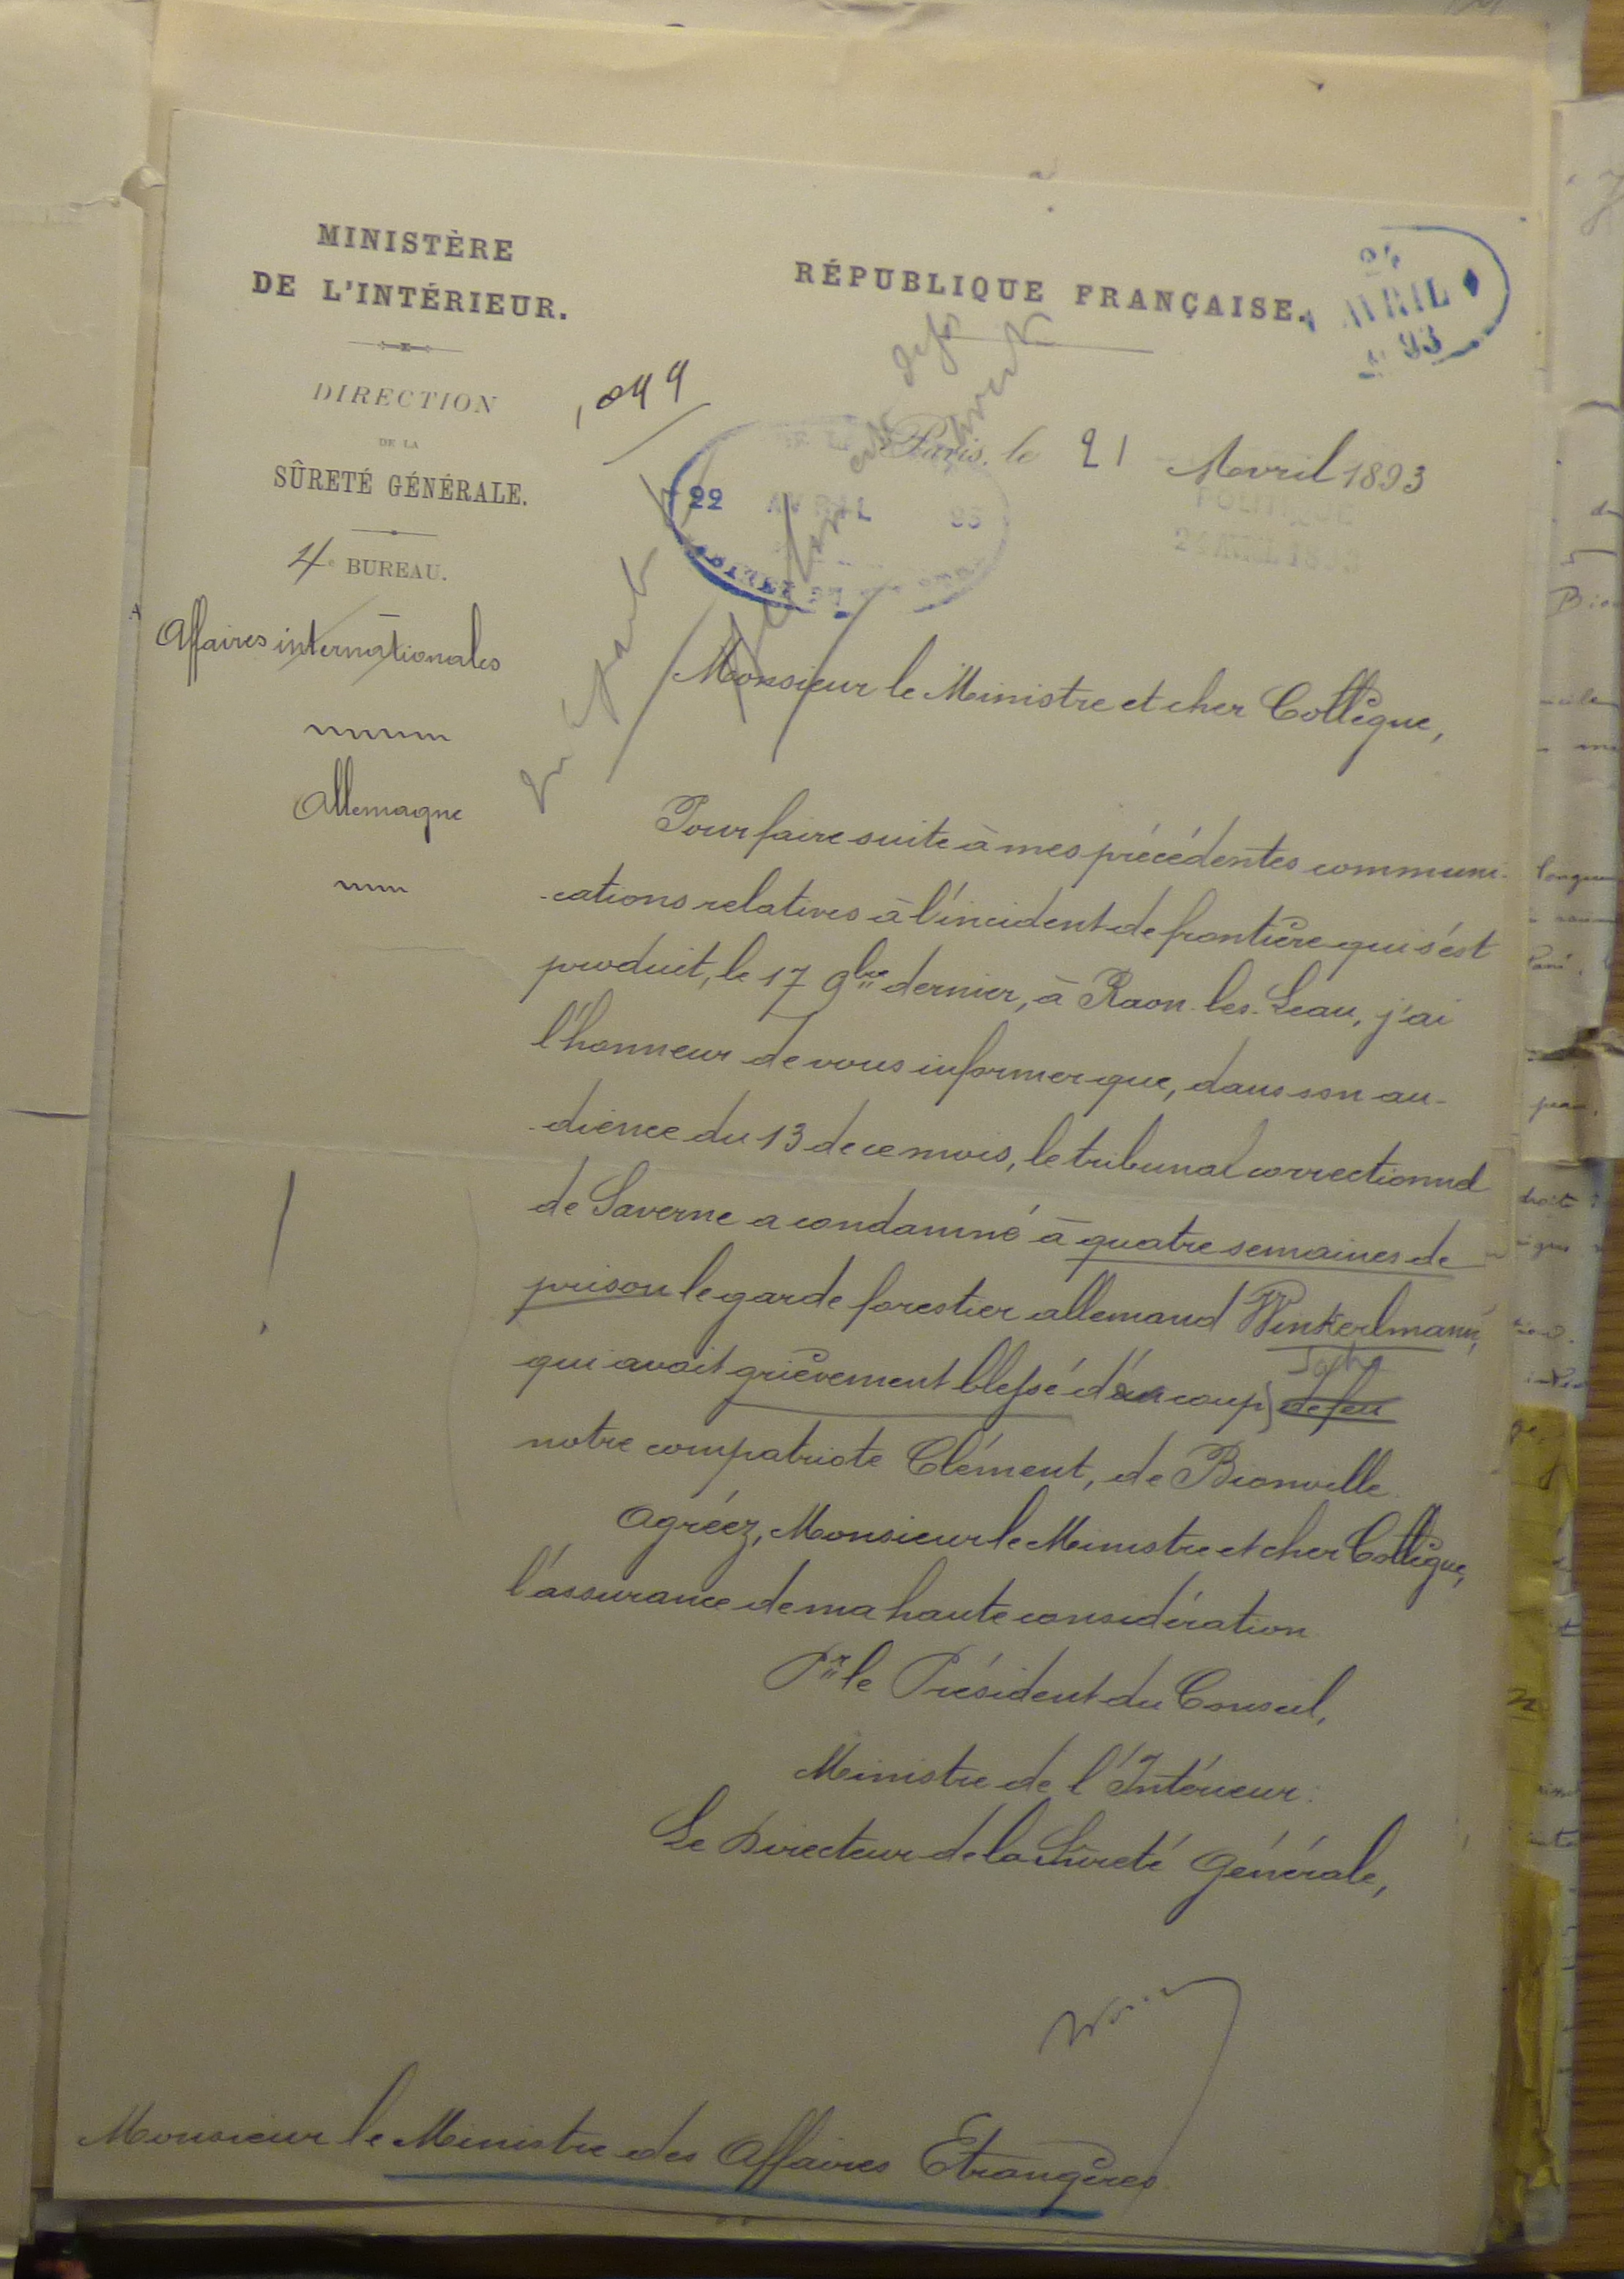 MINISTÈRE
DE L'INTÉRIEUR.
DIRECTION
DE LA
SÛRETÉ GÉNÉRALE.
4e BUREAU.
Affaires internationales
Allemagne
RÉPUBLIQUE FRANÇAISE.
24
AVRIL
93
22 AVRIL 93
Paris, le 21 Avril 1893
POLITIQUE
Monsieur le Ministre et cher Collègue,
Pour faire suite à mes précédentes communi-
-cations relatives à l'incident de frontière qui s'est
produit, le 17 9bre dernier, à Raon-les-Leau, j'ai
l'honneur de vous informer que, dans son au-
-dience du 13 de ce mois, le tribunal correctionnel
de Saverne a condamné à quatre semaines de
prison le garde forestier allemand Winkerlmann,
qui avait grièvement blessé d'un coup de feu
notre compatriote Clément, de Bionville.
Agréez, Monsieur le Ministre et cher Collègue,
l'assurance de ma haute considération
Pr le Président du Conseil,
Ministre de l'Intérieur:
Le Directeur de la Sûreté Générale,
Monsieur le Ministre des Affaires Etrangères